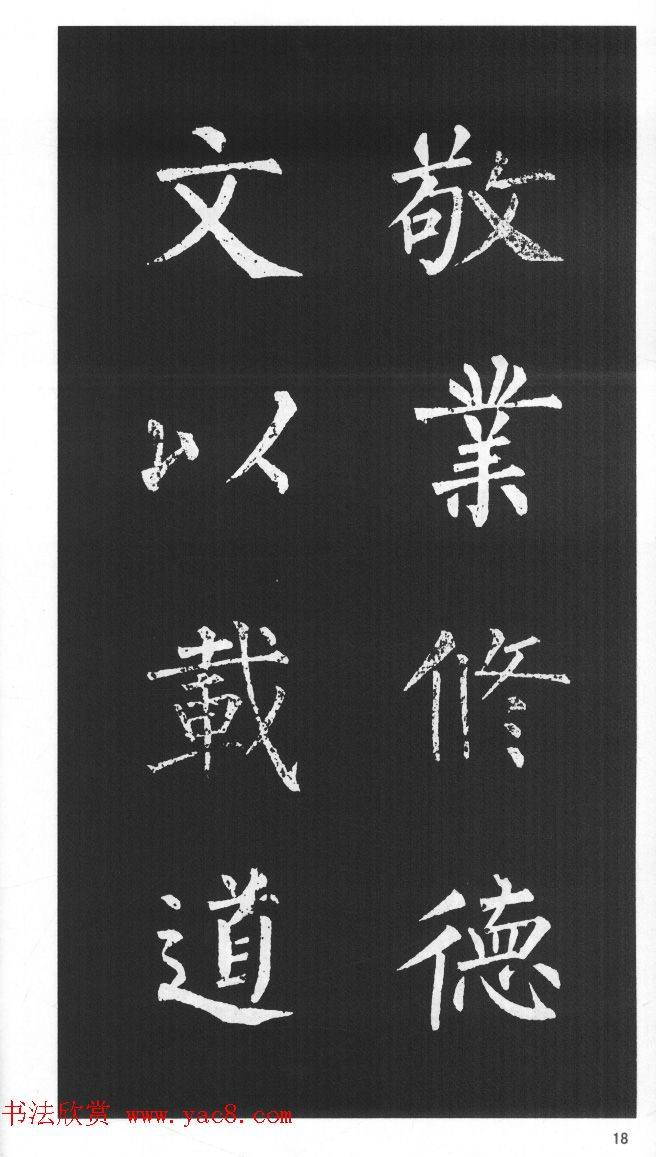 敬業修德
文以載道
书法欣赏 www.yac8.com
18